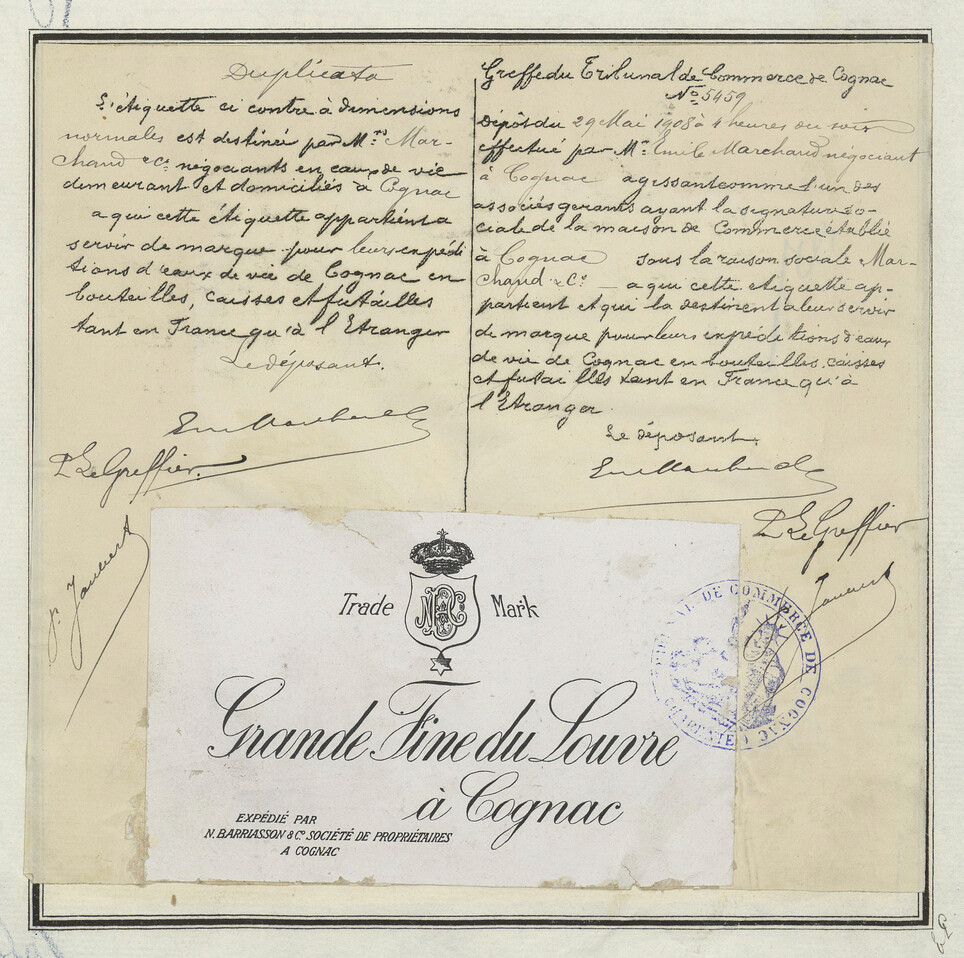 Duplicata
L'étiquette ci contre à dimensions
normales est destinée par Mrs Mar-
chand & Co négociants en eaux de vie
demeurant et domiciliés à Cognac
a qui cette étiquette appartient a
servir de marque pour leurs expédi
tions d'eaux de vie de Cognac en
bouteilles, caisses et futailles
tant en France qu'à l'Etranger
Le déposant.
P Le Greffier.
Greffe du Tribunal de Commerce de Cognac
No 5459
Dépôt du 29 Mai 1908 à 4 heures du soir
effectué par Mr Emile Marchand négociant
à Cognac agissant comme l'un des
associés gerants ayant la signature so-
ciale de la maison de Commerce établie
à Cognac sous la raison sociale Mar-
chand & Co — a qui cette etiquette ap-
partient et qui la destinent a leur servir
de marque pour leurs expéditions d'eaux
de vie de Cognac en bouteilles, caisses
et futailles tant en France qu'à
l'Etranger.
Le déposant.
P Le Greffier
Trade Mark
Grande Fine du Louvre
à Cognac
EXPÉDIÉ PAR
N. BARRIASSON & Co SOCIÉTÉ DE PROPRIÉTAIRES
A COGNAC
TRIBUNAL DE COMMERCE DE COGNAC